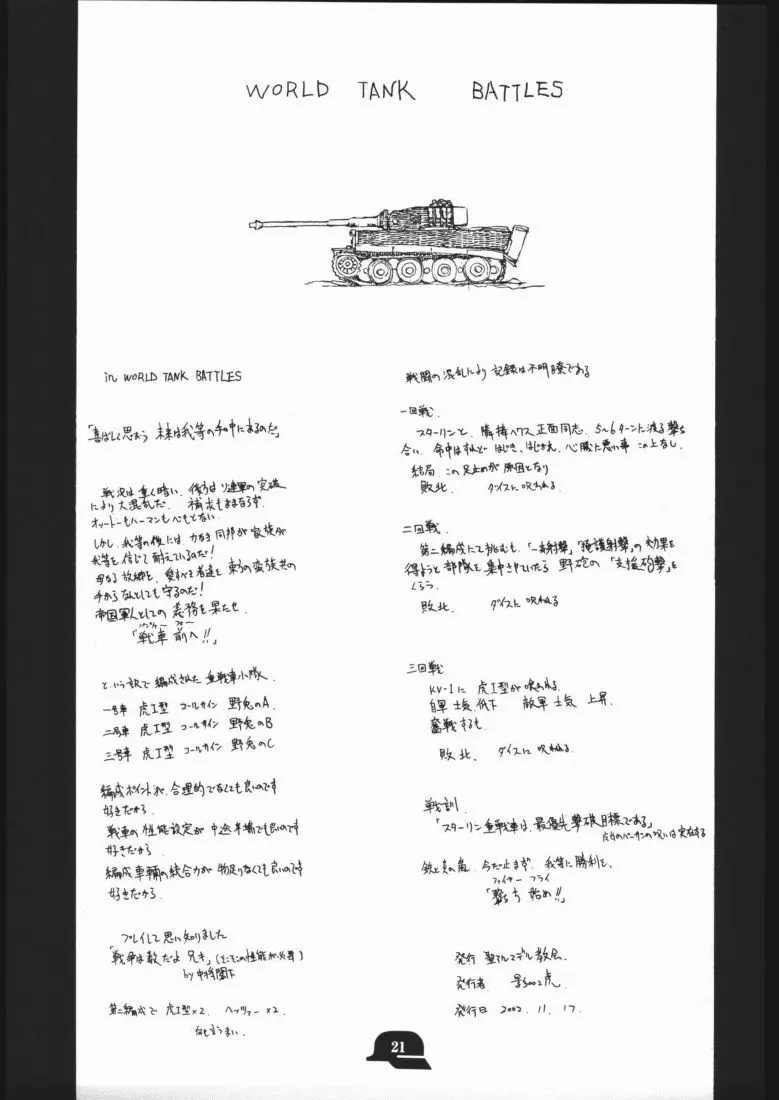 WORLD TANK BATTLES
in WORLD TANK BATTLES
「喜ばしく思おう 未来は我等の手中にあるのだ」
戦況は重く暗い、後方はソ連軍の突破
により大混乱だ。 補求もままならず、
オットーもハーマンもべもどない
しかし、我等の後には力なき同邦が家族が
我等を信じて耐えているのだ!
母なる故郷と、愛すべき者達を東方の蛮族共の
手からなんとしても守るのだ!
帝国軍人としての義務を果たせ
パンツァー フォー
「戦車 前へ!!」
という訳で編成された重戦車小隊
一号車 虎I型 コールサイン 野兎のA
二号車 虎I型 コールサイン 野兎のB
三号車 虎I型 コールサイン 野兎のC
編成ポイントが、合理的でなくても良いのです
好きだから
戦車の性能設定が中途半端でも良いのです
好きだから
編成車輌の統合力が物足りなくても良いのです
好きだから
プレイして思い知りました
「戦争は数だよ兄キ」(そこそこの性能が必要)
by 中将閣下
第二編成で 虎I型×2 ヘッツァー×2
何も言うまい
戦闘の混乱により記録は不明瞭である
一回戦
スターリンと、 正面同志、5~6ターンに渡る撃ち
合い、命中はすれどはじき、はじかれ、心臓に悪い事この上なし、
結局、この足止めが原因となり
敗北、 ダイスに呪われる
二回戦
第二編成にて挑むも、「一斉射撃」「掩護射撃」の効果を
得ようと部隊を集中させていたら 野砲の「支援砲撃」を
くらう
敗北、 ダイスに呪われる
三回戦
KV-1に 虎I型が喰われる
自軍 士気 低下 敵軍 士気 上昇
奮戦するも
敗北、 ダイスに呪われる
戦訓
「スターリン重戦車は、最優先撃破目標である」
の呪いは実在する
鉄と炎の嵐、今だ止まず、我等に勝利を、
ファイヤー フライ
「撃ち 始め!!」
発行 聖アルマデル教会
発行者
発行日 2002. 11. 17.
21